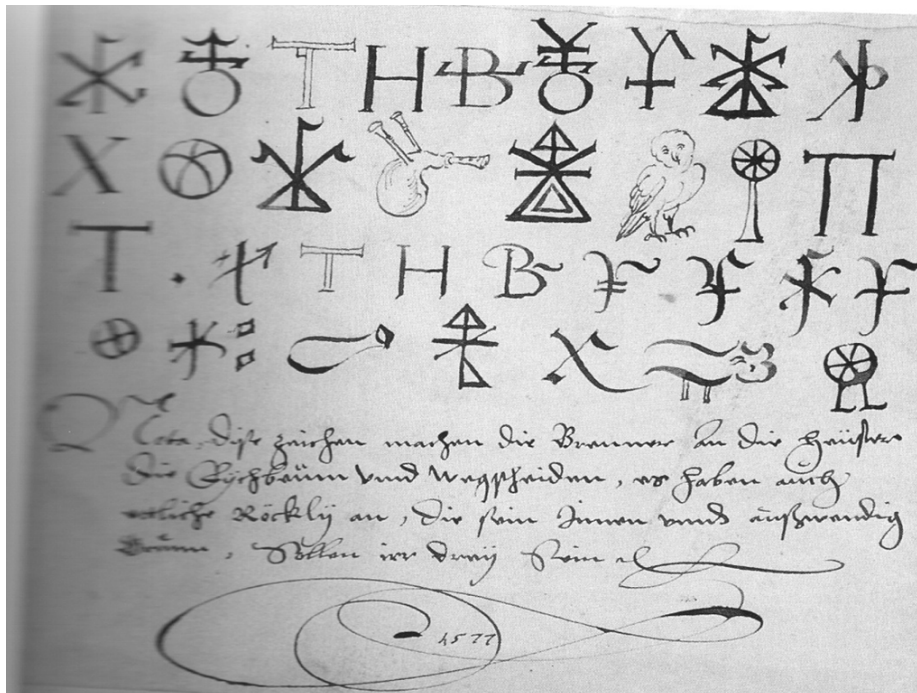 T H B
X
T
T H B
Nota. Dise zeichen machen die Brenner An die Heüser
die Eychbeüm vnnd wegscheiden, es haben auch
ettliche Röcklÿ an, die sein Innen vnnd außwendig
Sollen irr dreÿ Sein
1577